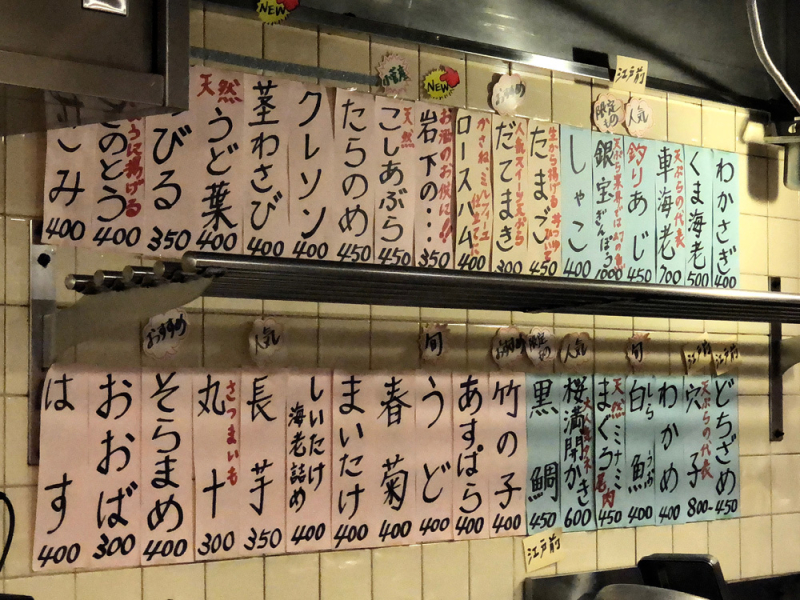 わかさぎ
400
くま海老
500
天ぷらの代表
車海老
700
人気
釣りあじ
450
江戸前
限定
銀宝ぎんぽう
1000
しゃこ
400
生から揚げる
たまご
450
おすすめ
だてまき
300
ロースハム
400
NEW
お酒のお供に!!
岩下の・・
350
小菅産
天然
こしあぶら
450
たらのめ
450
クレソン
400
茎わさび
400
天然
うど葉
400
NEW
びる
350
揚げる
のとう
400
こみ
400
江戸前
どちざめ
450
江戸前
天ぷらの代表
穴子
800-
わかめ
400
旬
白魚
しらうお
400
天然ミナミ
まぐろ
450
人気
桜満開かき
600
限定
黒鯛
450
江戸前
おすすめ
竹の子
400
あすぱら
400
旬
うど
400
春菊
400
まいたけ
400
しいたけ
海老詰め
400
人気
長芋
350
さつまいも
丸十
300
おすすめ
そらまめ
400
おおば
300
はす
400